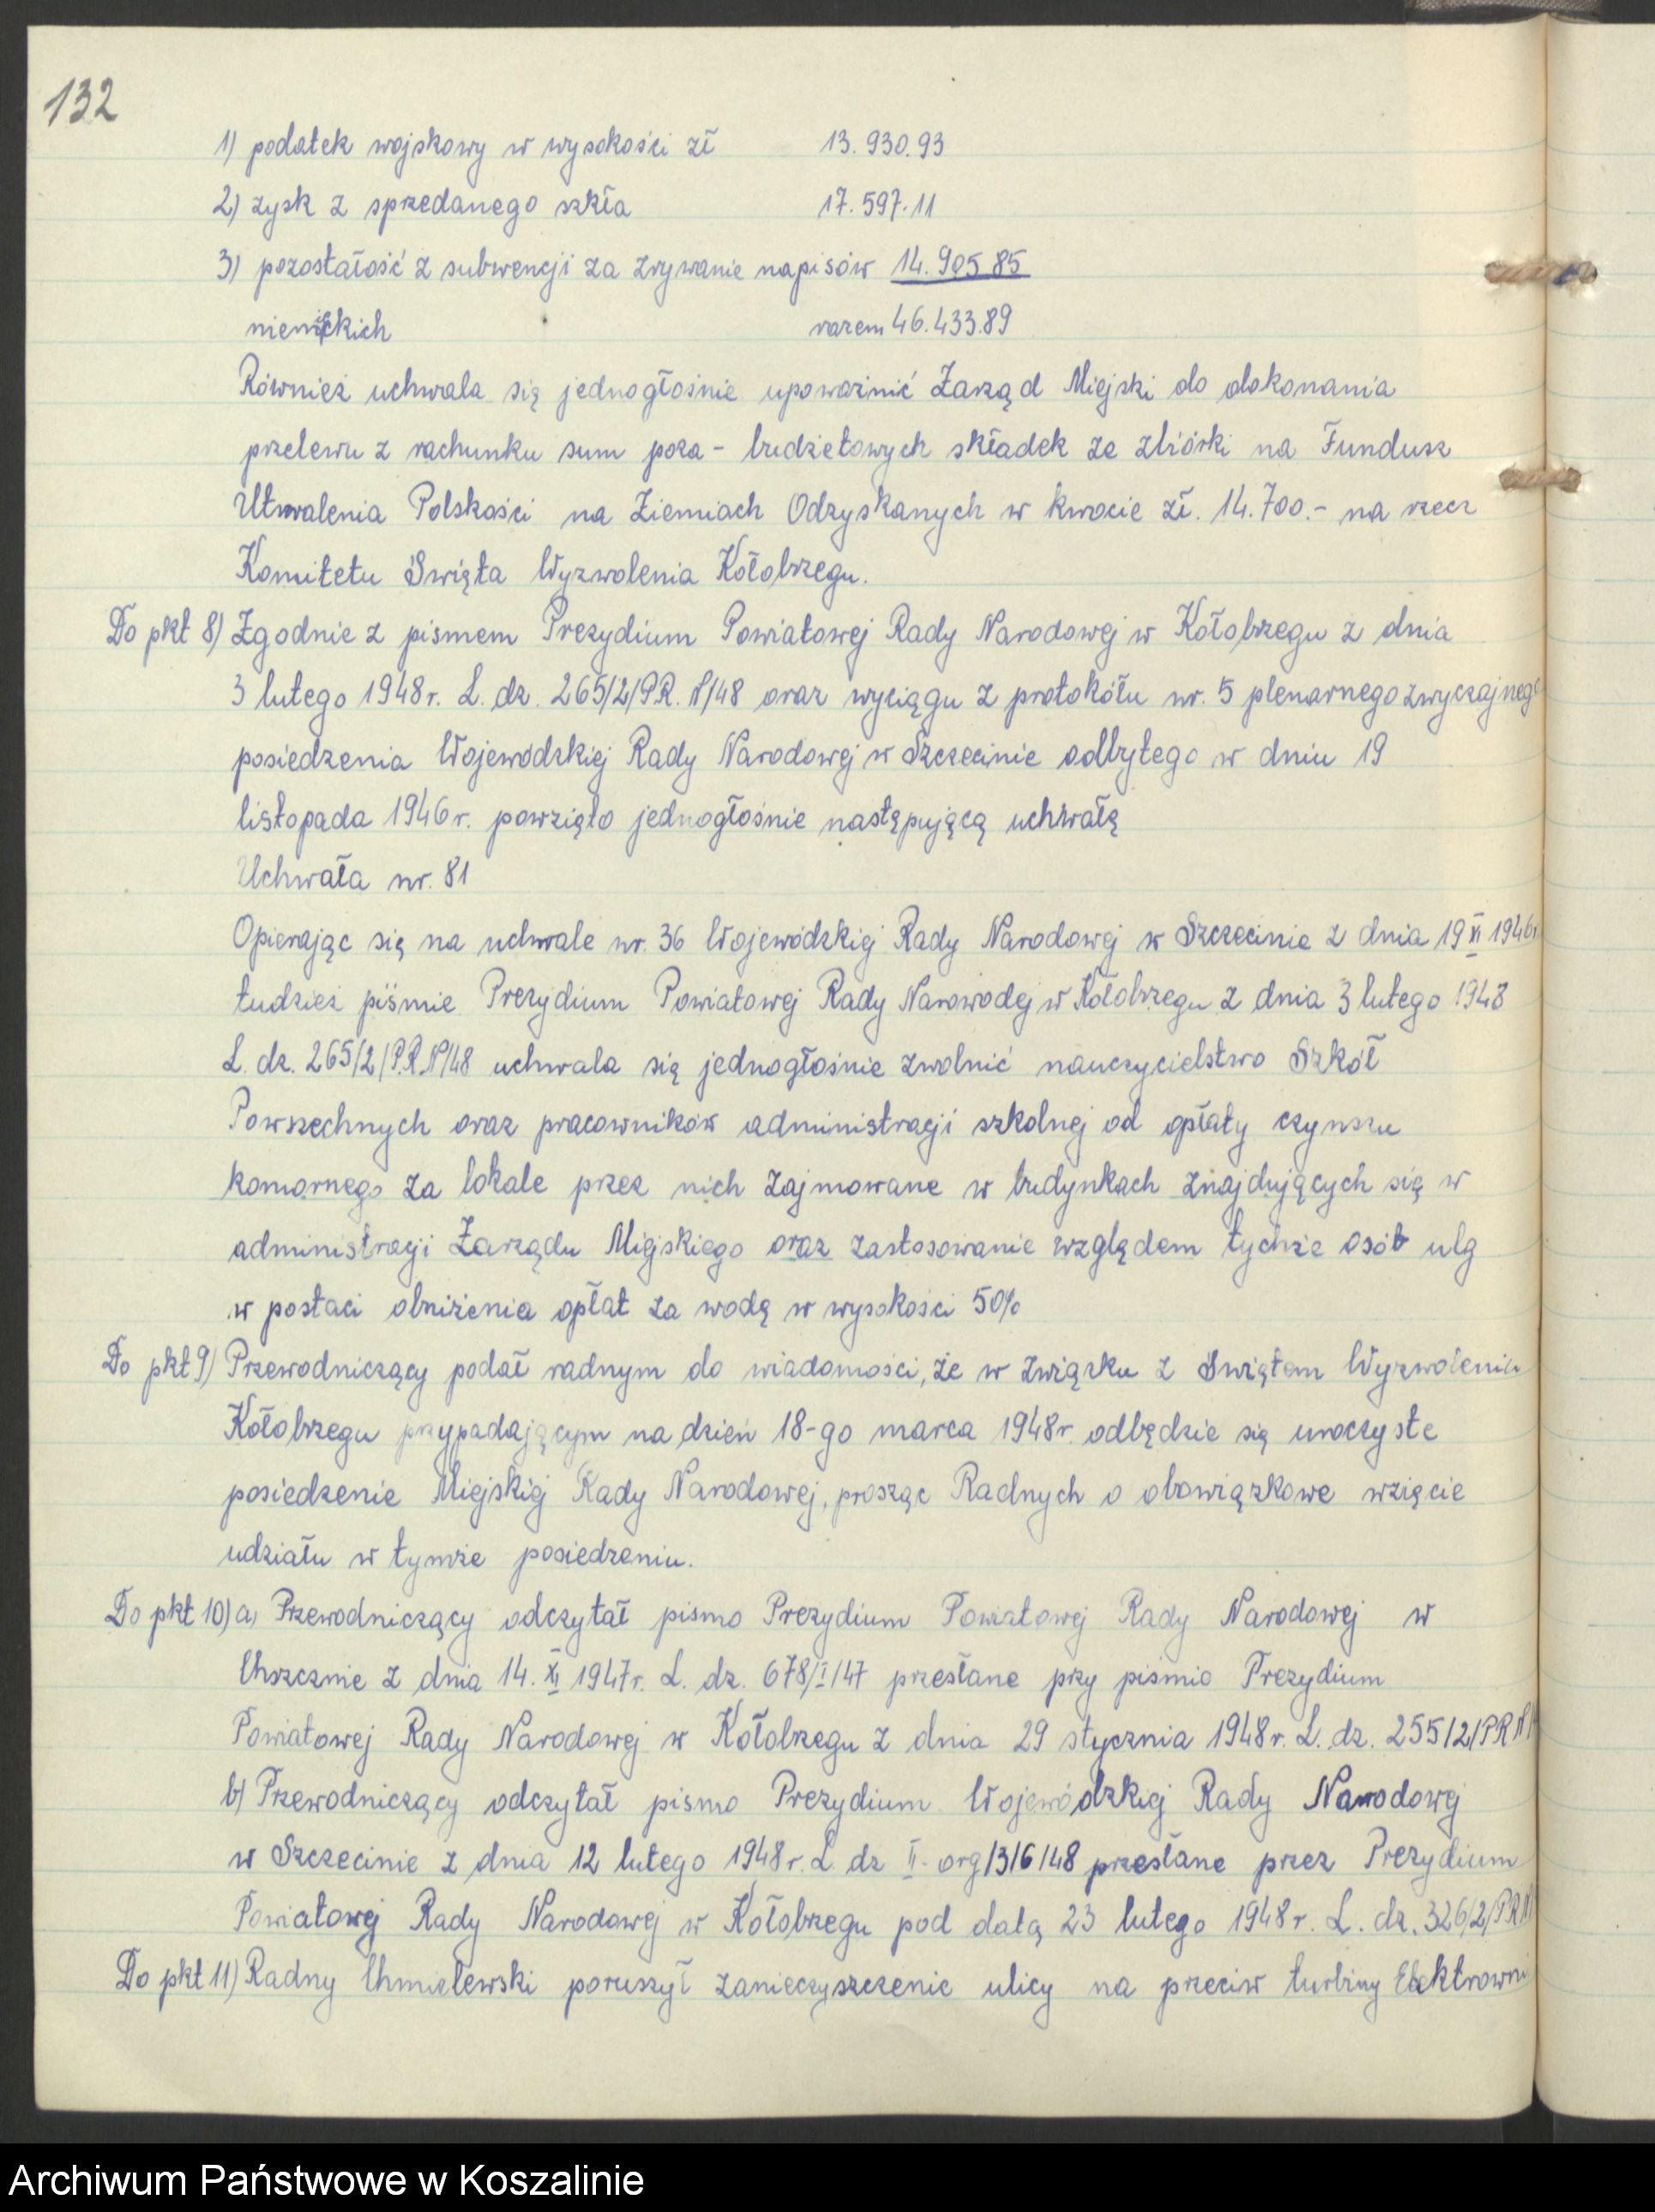 132
1) podatek wojskowy w wysokości zł 13.930.93
2) zysk z sprzedanego szkła 17.597.11
3) pozostałość z subwencji za zrywanie napisów 14.905 85
niemieckich razem 46.433.89
Również uchwala się jednogłośnie upoważnić Zarząd Miejski do dokonania
przelewu z rachunku sum poza - budżetowych składek ze zbiórki na Fundusz
Utrwalenia Polskości na Ziemiach Odzyskanych w kwocie zł. 14.700.- na rzecz
Komitetu Święta Wyzwolenia Kołobrzegu.
Do pkt 8) Zgodnie z pismem Prezydium Powiatowej Rady Narodowej w Kołobrzegu z dnia
3 lutego 1948 r. L. dz. 265/2/P.R.N/48 oraz wyciągu z protokółu nr. 5 plenarnego zwyczajnego
posiedzenia Wojewódzkiej Rady Narodowej w Szczecinie odbytego w dniu 19
listopada 1946 r. powzięto jednogłośnie następującą uchwałę
Uchwała nr. 81
Opierając się na uchwale nr. 36 Wojewódzkiej Rady Narodowej w Szczecinie z dnia 19 XI 1946r
tudzież piśmie Prezydium Powiatowej Rady Narowodej w Kołobrzegu z dnia 3 lutego 1948
L. dz. 265/2/P.R.N/48 uchwala się jednogłośnie zwolnić nauczycielstwo Szkół
Powszechnych oraz pracowników administracji szkolnej od opłaty czynszu
komornego za lokale przez nich zajmowane w budynkach znajdujących się w
administracji Zarządu Miejskiego oraz zastosowanie względem tychże osób ulg
w postaci obniżenia opłat za wodę w wysokości 50%
Do pkt 9) Przewodniczący podał radnym do wiadomości, że w związku z Świętem Wyzwolenia
Kołobrzegu przypadającym na dzień 18-go marca 1948 r. odbędzie się uroczyste
posiedzenie Miejskiej Rady Narodowej, prosząc Radnych o obowiązkowe wzięcie
udziału w tymże posiedzeniu.
Do pkt 10) a) Przewodniczący odczytał pismo Prezydium Powiatowej Rady Narodowej w
Choszcznie z dnia 14. XI 1947 r. L. dz. 678/I/47 przesłane przy piśmie Prezydium
Powiatowej Rady Narodowej w Kołobrzegu z dnia 29 stycznia 1948 r. L. dz. 255/2/PRN
b) Przewodniczący odczytał pismo Prezydium Wojewódzkiej Rady Narodowej
w Szczecinie z dnia 12 lutego 1948 r. L dz II - org/316/48 przesłane przez Prezydium
Powiatowej Rady Narodowej w Kołobrzegu pod datą 23 lutego 1948 r. L. dz. 326/2/PRN
Do pkt 11) Radny Chmielewski poruszył zanieczyszczenie ulicy na przeciw turbiny Elektrowni
Archiwum Państwowe w Koszalinie